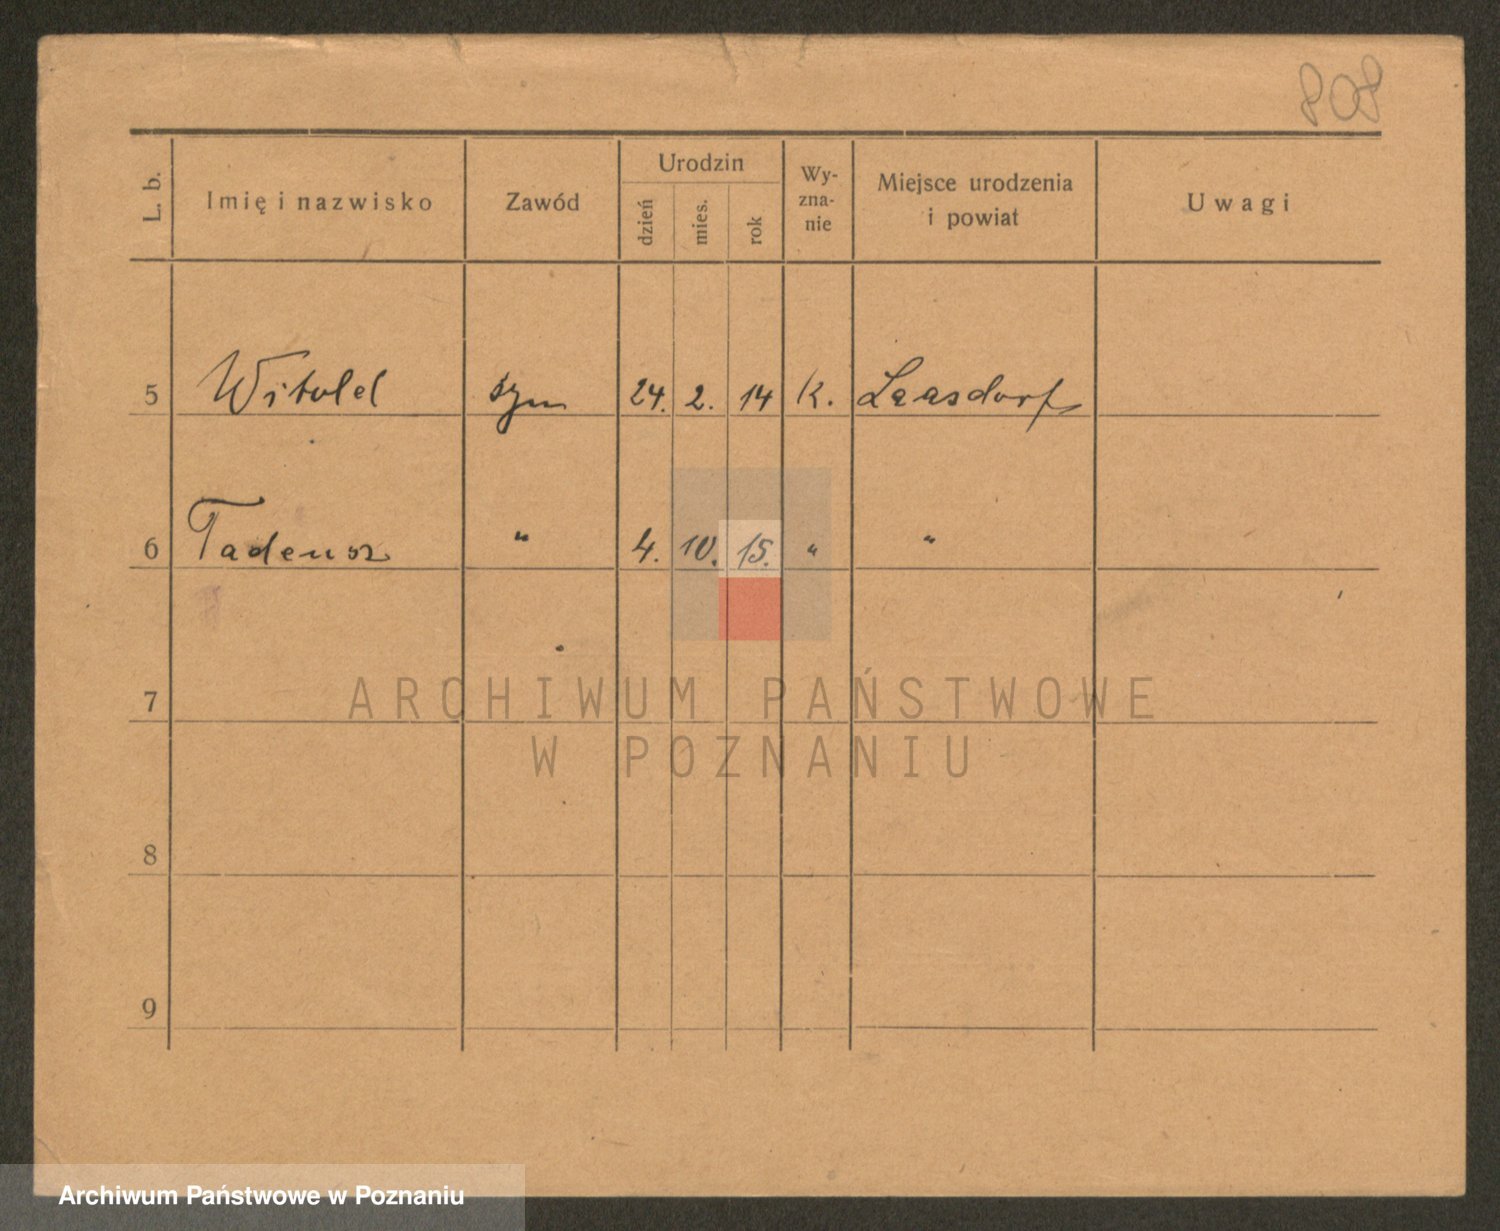 808
L. b. Imię i nazwisko Zawód Urodzin dzień mies. rok Wy-zna-nie Miejsce urodzenia i powiat Uwagi
5 Witold syn 24. 2. 14 K. Laasdorf
6 Tadeusz " 4. 10. 15. " "
7
8
9
ARCHIWUM PAŃSTWOWE
W POZNANIU
Archiwum Państwowe w Poznaniu